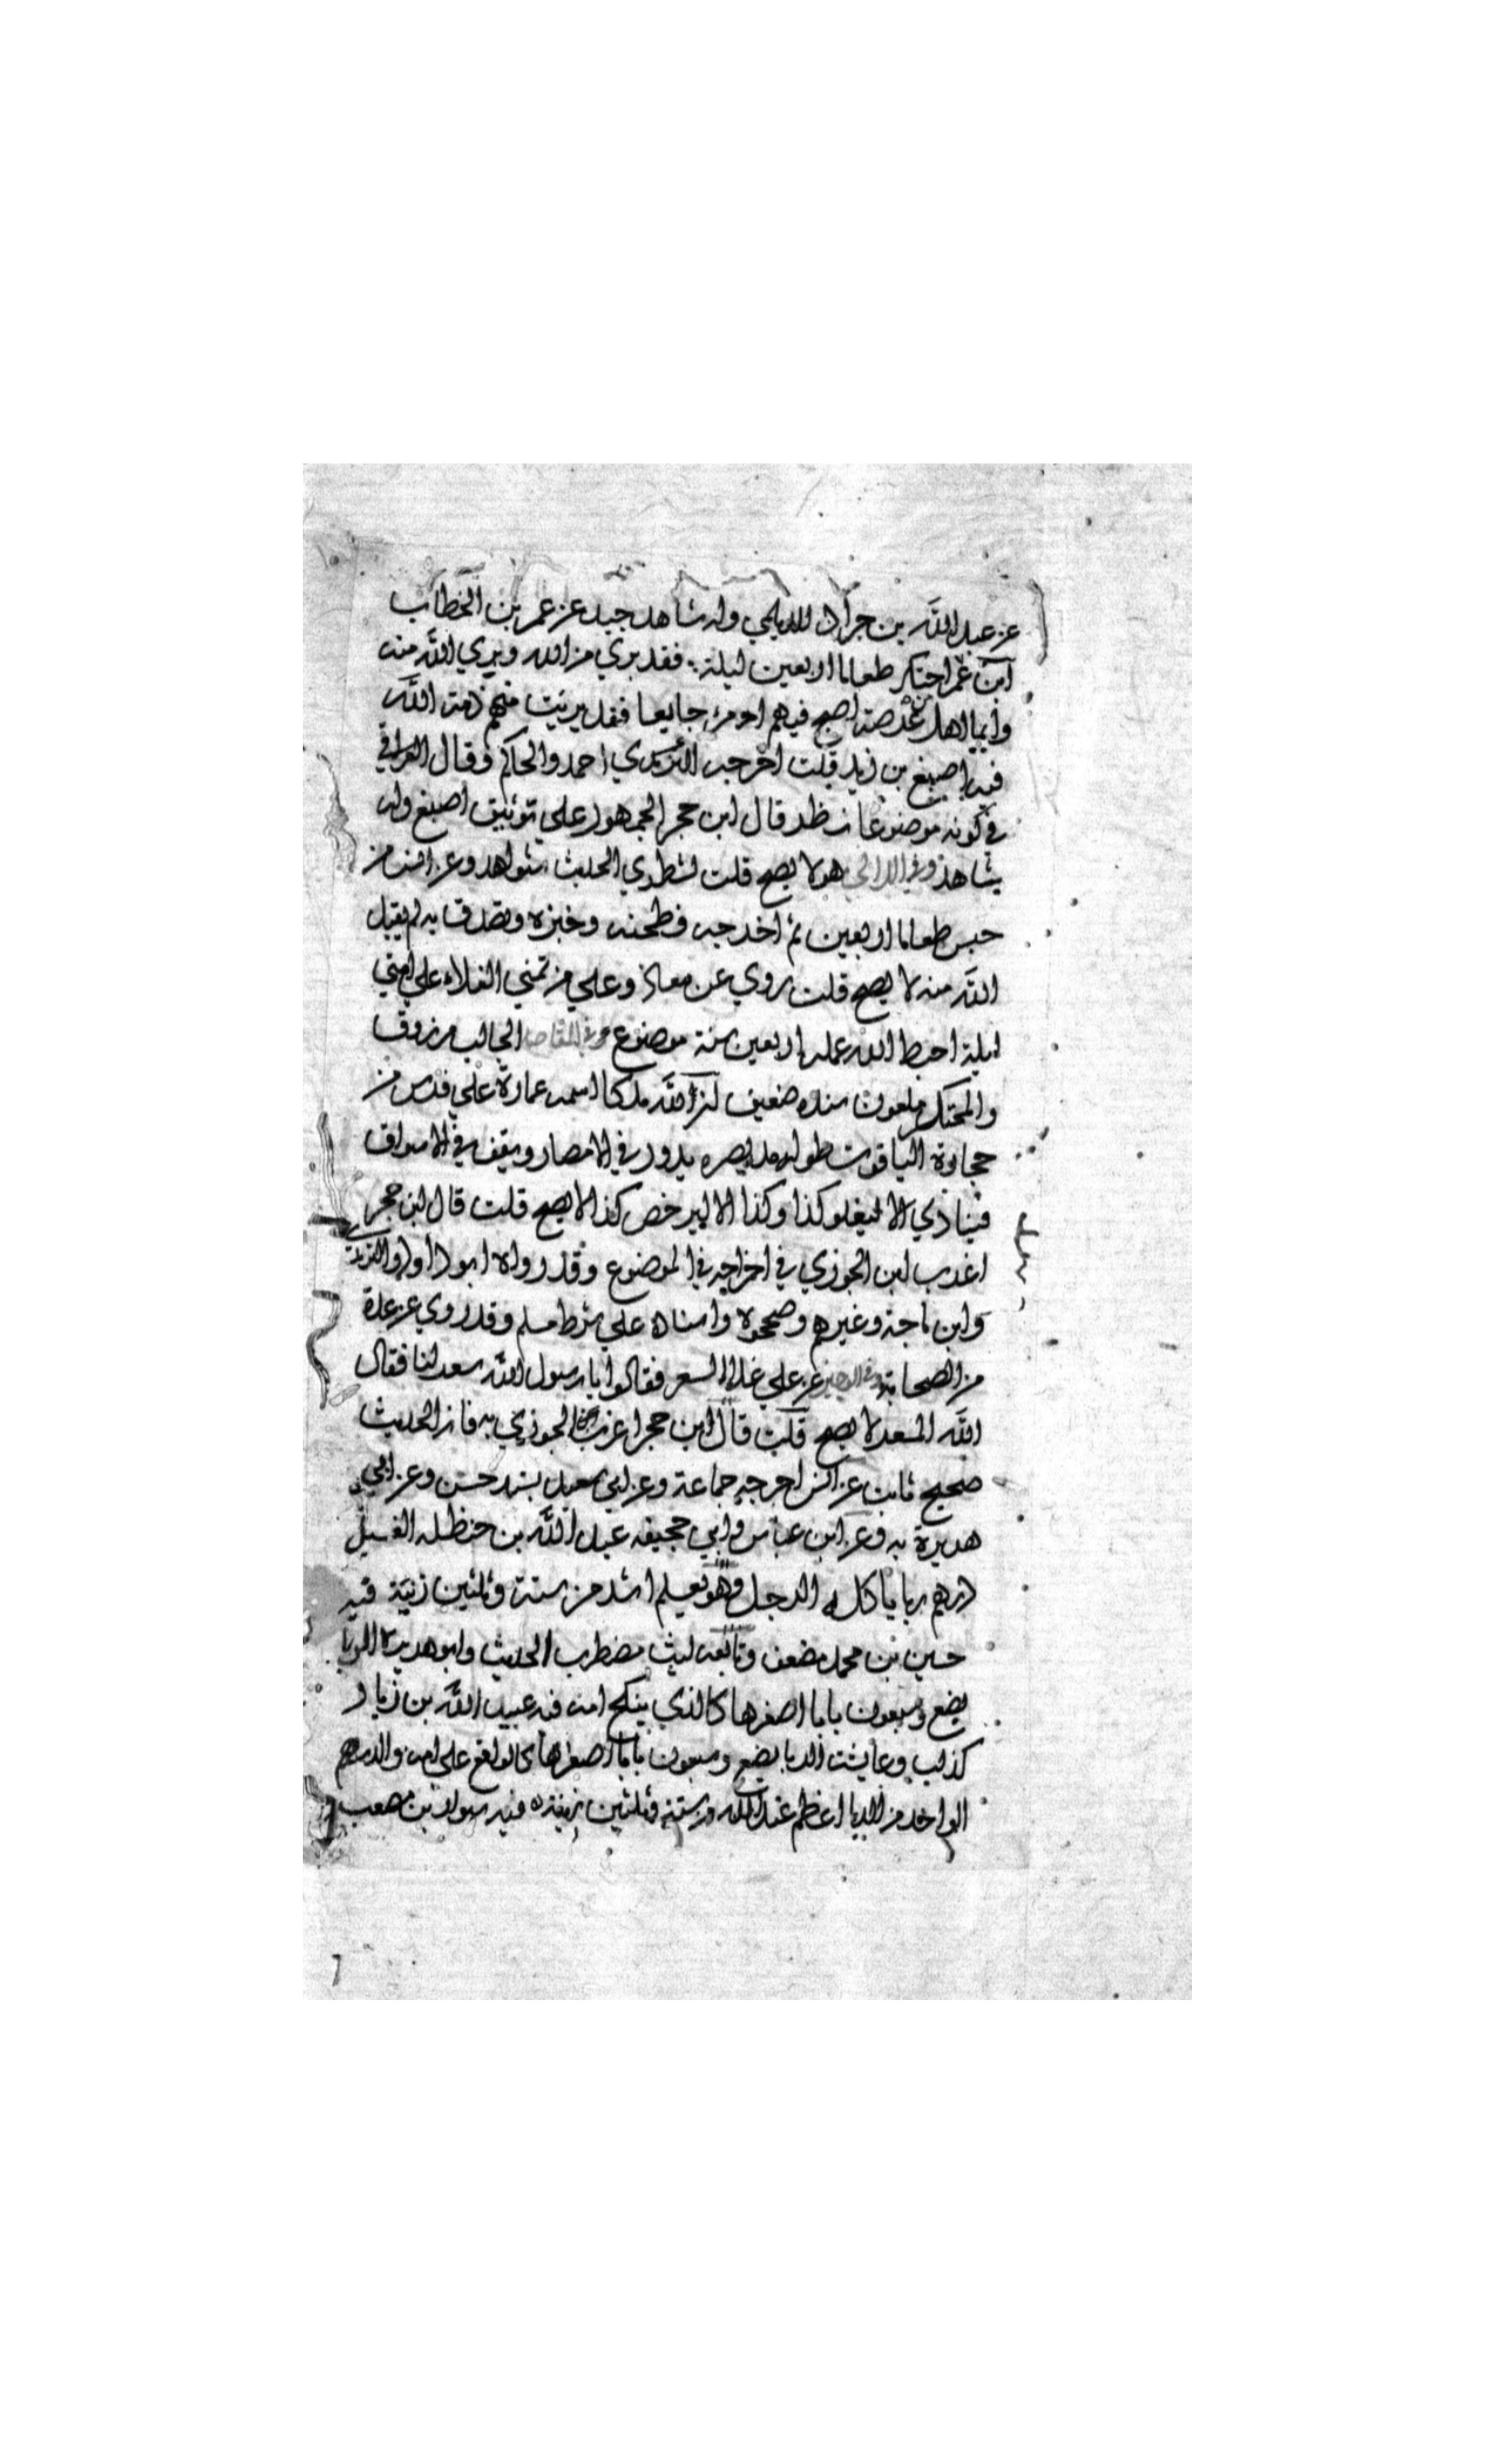 عن عبد الله بن جراد للديلمي وله شاهد جيد عن عمر بن الخطاب
ابن عمر احتكر طعاما اربعين ليلة فقد بري من الله وبري الله منه
وايما اهل عرصة اصبح فيهم امرء جايعا فقد بريت منهم ذمة الله
فيه اصبغ بن زيد قلت اخرجه احمد والحاكم وقال العراقي
في كونه موضوعا نظر قال ابن حجر الجمهور على توثيق اصبغ وله
شاهد وفي اللالي هو لا يصح قلت لشطري الحديث شواهد وعن انس من
حبس طعاما اربعين ثم اخرجه فطحنه وخبزه وتصدق به لم يقبل
الله منه لا يصح قلت روي عن معاذ وعلي من تمني الغلاء علي امتي
ليلة احبط الله عمله اربعين سنة موضوع وفي المقاصد الجالب مرزوق
والمحتكر ملعون سنده ضعيف لله ملكا اسمه عمارة علي فرس من
حجارة الياقوت طوله مد بصره يدور في الامصار ويقف في الاسواق
فينادي الا ليغلو كذا وكذا الا ليرخص كذا لا يصح قلت قال ابن حجر
اغرب ابن الجوزي في اخراجه في الموضوع وقد رواه ابو داود والترمذي
وابن ماجة وغيرهم وصححوه واسناده علي شرط مسلم وقد روي عن عدة
من الصحابة وفي الوجيز عن علي غلا السعر فقالوا يا رسول الله سعر لنا فقال
الله المسعر لا يصح قلت قال ابن حجر اغرب ابن الجوزي به فان الحديث
صحيح ثابت عن انس اخرجه جماعة وعن ابي سعيد بسند حسن وعن ابي
هريرة به وعن ابن عباس وابي جحيفه عبد الله بن حنظله الغسيل
درهم ربا ياكله الرجل وهو يعلم اشد من ستة وثلثين زنية فيه
حسين بن محمد مضعف وتابعه ليث مضطرب الحديث وابو هريرة الربا
بضع وسبعون بابا اصغرها كالذي ينكح امه فيه عبيد الله بن زياد
كذاب وعايشة الربا بضع وسبعون بابا اصغرها كالواقع علي امه والدرهم
الواحد من الربا اعظم عند الله من ستة وثلثين زنية فيه سوار بن مصعب